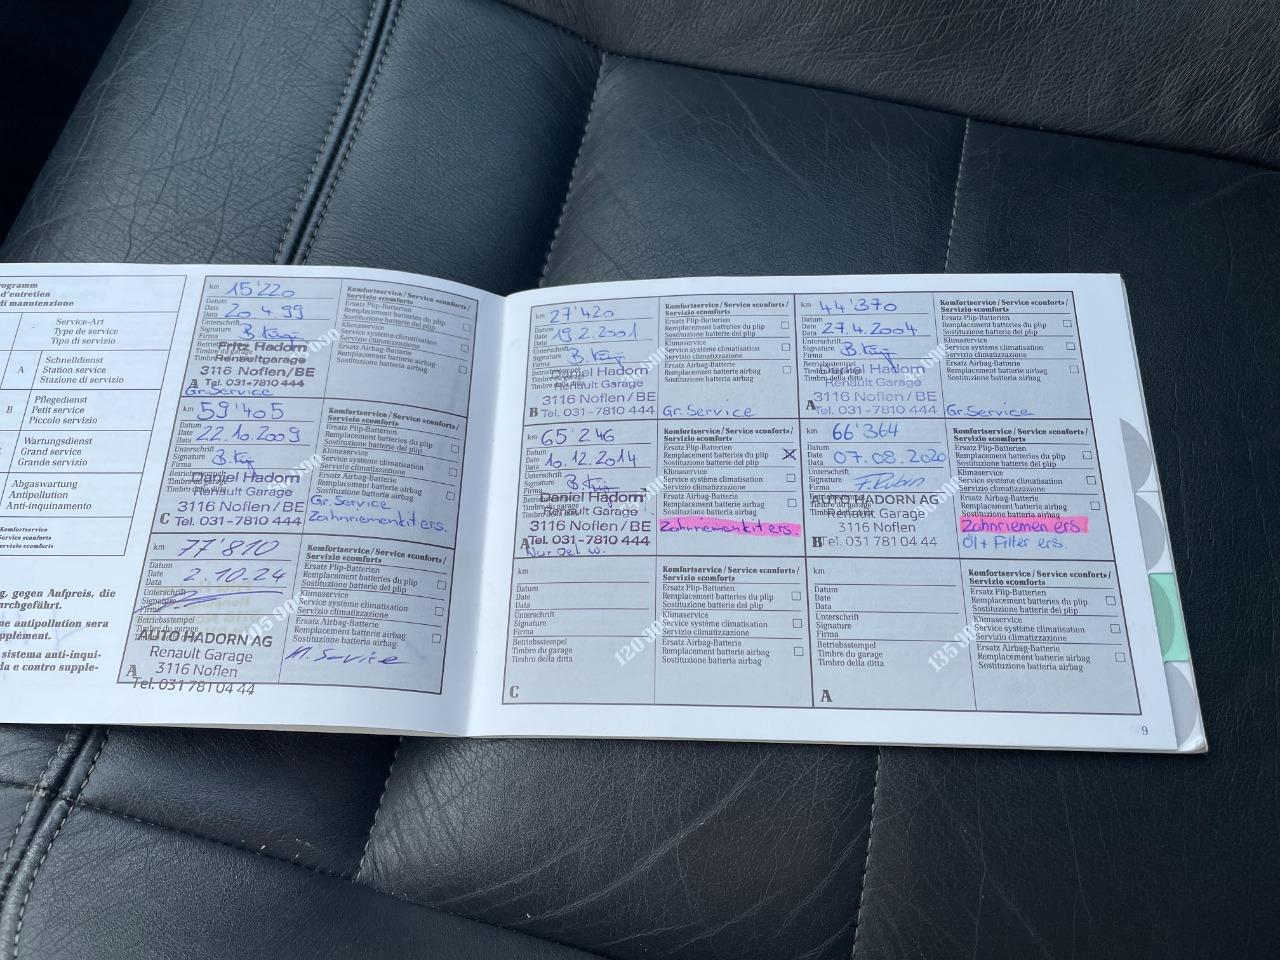 rogramm
d'entretien
di manutenzione
Service-Art
Type de service
Tipo di servizio
A
Schnelldienst
Station service
Stazione di servizio
B
Pflegedienst
Petit service
Piccolo servizio
Wartungsdienst
Grand service
Grande servizio
Abgaswartung
Antipollution
Anti-inquinamento
g, gegen Aufpreis, die
rchgeführt.
ne antipollution sera
pplément.
sistema anti-inqui-
da e contro supple-
km 15'220
Datum
Date
Data
20.4.99
Unterschrift
Signature
Firma
Fritz Hadorn
Renaultgarage
3116 Noflen/BE
A Tel. 031-7810 444
Gr. Service
Komfortservice / Service «confort» /
Servizio «comfort»
Ersatz Plip-Batterien
Remplacement batteries du plip
Sostituzione batterie del plip
Klimaservice
Service système climatisation
Servizio climatizzazione
Ersatz Airbag-Batterie
Remplacement batterie airbag
Sostituzione batteria airbag
km 59'405
Datum
Date
Data
22.10.2009
Unterschrift
Signature
Firma
Daniel Hadorn
Renault Garage
3116 Noflen/BE
C Tel. 031-7810 444
Komfortservice / Service «confort» /
Servizio «comfort»
Ersatz Plip-Batterien
Remplacement batteries du plip
Sostituzione batterie del plip
Klimaservice
Service système climatisation
Servizio climatizzazione
Ersatz Airbag-Batterie
Remplacement batterie airbag
Sostituzione batteria airbag
Gr. Service
Zahnriemenkit ers.
km 77'810
Datum
Date
Data
2.10.24
Unterschrift
Signature
Firma
Betriebsstempel
Timbre du garage
AUTO HADORN AG
Renault Garage
3116 Noflen
A Tel. 031 781 04 44
Komfortservice / Service «confort» /
Servizio «comfort»
Ersatz Plip-Batterien
Remplacement batteries du plip
Sostituzione batterie del plip
Klimaservice
Service système climatisation
Servizio climatizzazione
Ersatz Airbag-Batterie
Remplacement batterie airbag
Sostituzione batteria airbag
Service
km 27'420
Datum
Date
Data
19.2.2001
Unterschrift
Signature
Firma
Daniel Hadorn
Renault Garage
3116 Noflen/BE
B Tel. 031-7810 444
Komfortservice / Service «confort» /
Servizio «comfort»
Ersatz Plip-Batterien
Remplacement batteries du plip
Sostituzione batterie del plip
Klimaservice
Service système climatisation
Servizio climatizzazione
Ersatz Airbag-Batterie
Remplacement batterie airbag
Sostituzione batteria airbag
Gr. Service
km 44'370
Datum
Date
Data
27.4.2004
Unterschrift
Signature
Firma
Daniel Hadorn
Renault Garage
3116 Noflen/BE
A Tel. 031-7810 444
Komfortservice / Service «confort» /
Servizio «comfort»
Ersatz Plip-Batterien
Remplacement batteries du plip
Sostituzione batterie del plip
Klimaservice
Service système climatisation
Servizio climatizzazione
Ersatz Airbag-Batterie
Remplacement batterie airbag
Sostituzione batteria airbag
Gr. Service
km 65'246
Datum
Date
Data
10.12.2014
Unterschrift
Signature
Firma
Daniel Hadorn
Renault Garage
3116 Noflen/BE
A Tel. 031-7810 444
Nur Oel w.
Komfortservice / Service «confort» /
Servizio «comfort»
Ersatz Plip-Batterien
Remplacement batteries du plip
Sostituzione batterie del plip
Klimaservice
Service système climatisation
Servizio climatizzazione
Ersatz Airbag-Batterie
Remplacement batterie airbag
Sostituzione batteria airbag
Zahnriemenkit ers.
km 66'364
Datum
Date
Data
07.08.2020
Unterschrift
Signature
Firma
F. Rubin
AUTO HADORN AG
Renault Garage
3116 Noflen
B Tel. 031 781 04 44
Komfortservice / Service «confort» /
Servizio «comfort»
Ersatz Plip-Batterien
Remplacement batteries du plip
Sostituzione batterie del plip
Klimaservice
Service système climatisation
Servizio climatizzazione
Ersatz Airbag-Batterie
Remplacement batterie airbag
Sostituzione batteria airbag
Zahnriemen ers.
Öl + Filter ers.
km
Datum
Date
Data
Unterschrift
Signature
Firma
Betriebsstempel
Timbre du garage
Timbro della ditta
C
120 00
Komfortservice / Service «confort» /
Servizio «comfort»
Ersatz Plip-Batterien
Remplacement batteries du plip
Sostituzione batterie del plip
Klimaservice
Service système climatisation
Servizio climatizzazione
Ersatz Airbag-Batterie
Remplacement batterie airbag
Sostituzione batteria airbag
km
Datum
Date
Data
Unterschrift
Signature
Firma
Betriebsstempel
Timbre du garage
Timbro della ditta
A
135 00
Komfortservice / Service «confort» /
Servizio «comfort»
Ersatz Plip-Batterien
Remplacement batteries du plip
Sostituzione batterie del plip
Klimaservice
Service système climatisation
Servizio climatizzazione
Ersatz Airbag-Batterie
Remplacement batterie airbag
Sostituzione batteria airbag
9